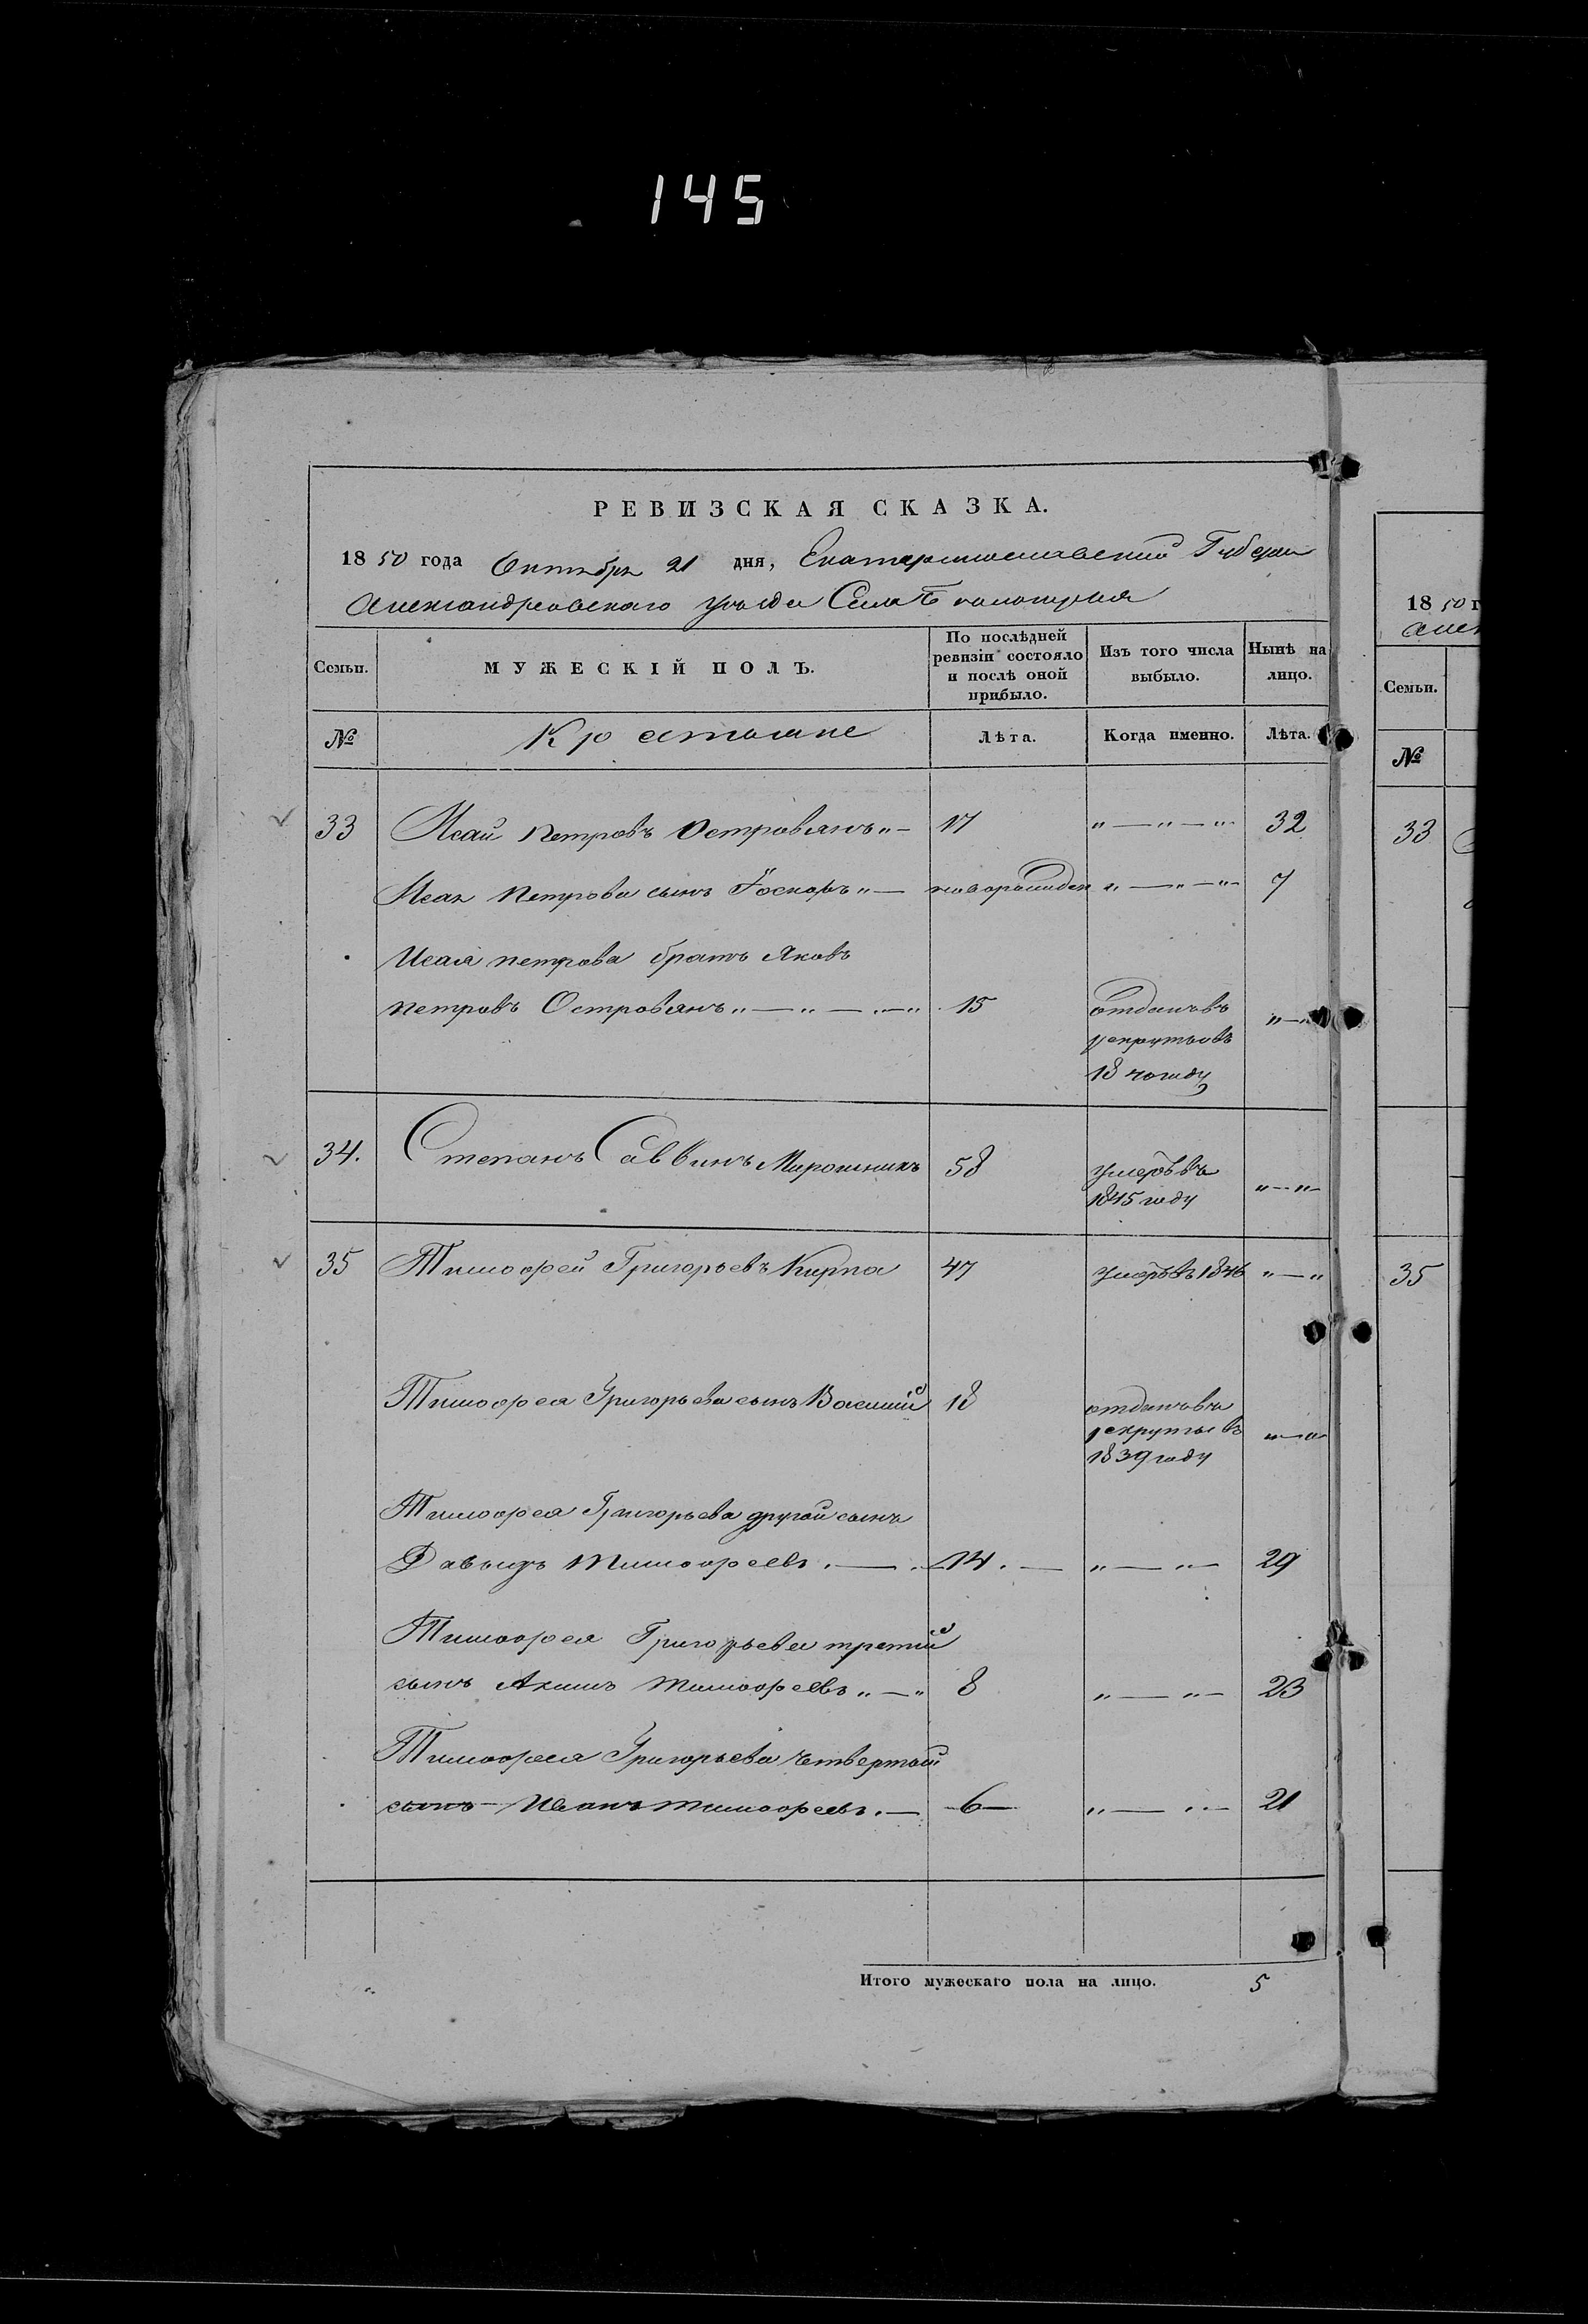 145
РЕВИЗСКАЯ СКАЗКА.
1850 года Октября 21 дня, Екатеринославской Губерніи
Александровскаго уѣзда Села Бѣлогорья
Семьи. МУЖЕСКІЙ ПОЛЪ. По послѣдней ревизіи состояло и послѣ оной прибыло. Изъ того числа выбыло. Нынѣ на лицо.
№ Крестьяне Лѣта. Когда именно. Лѣта.
33 Исай Петровъ Островянъ 17 32
Исая Петрова сынъ новорожден 7
Исая петрова братъ Яковъ
петровъ Островянъ 15 отданъ въ
рекруты въ
18 году
34. Степанъ Саввинъ Мирошникъ 58 умеръ въ
1845 году
35 Тимофей Григорьевъ Кирпа 47 умеръ въ 1846
Тимофея Григорьева сынъ Василий 18 отданъ въ
рекруты въ
1839 году
Тимофея Григорьева другой сынъ
Давыдъ Тимофеевъ 14. 29
Тимофея Григорьева третий
сынъ Акимъ Тимофеевъ 8 23
Тимофея Григорьева четвертой
сынъ Иванъ Тимофеевъ 6 21
Итого мужескаго пола на лицо. 5
1850 г
Семьи.
№
33
35